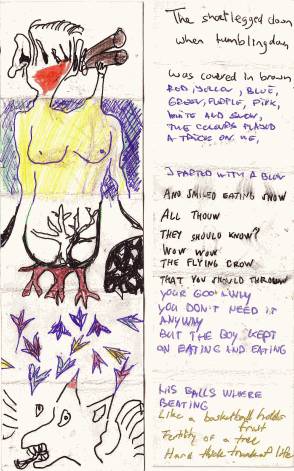 The shortlegged clown
when tumbling down
was covered in brown
RED, YELLOW, BLUE,
GREEN, PURPLE, PINK,
WHITE AND SNOW,
THE COLOURS PLAYED
A TRICK ON ME,
I PARTED WITH A BLOW
AND SMILED EATING SNOW
ALL THOUW
THEY SHOULD KNOW?
WOW WOW
THE FLYING CROW
THAT YOU SHOULD THROUW
YOUR GOO AWAY
YOU DON'T NEED IT
ANYWAY
BUT THE BOY KEPT
ON EATING AND EATING
HIS BALLS WHERE
BEATING
Like a basketball holds
fruit
Fertility of a tree
Hard thick trunk of life